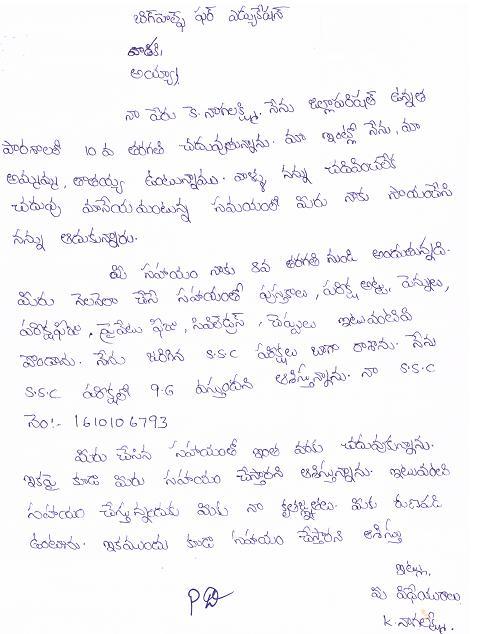 బిగ్‌హెల్ప్ ఫర్ ఎడ్యుకేషన్
అయ్యా,
నా పేరు కె. నాగలక్ష్మి. నేను జిల్లాపరిషత్ ఉన్నత
పాఠశాలలో 10 వ తరగతి చదువుతున్నాను. మా ఇంట్లో నేను, మా
అమ్మమ్మ, తాతయ్య ఉంటున్నాము. వాళ్ళు నన్ను చదివించలేక
చదువు మానేయమంటున్న సమయంలో మీరు నాకు సాయంచేసి
నన్ను ఆదుకున్నారు.
మీ సహాయం నాకు 8వ తరగతి నుండి అందుతున్నది.
మీరు నెలనెలా చేసే సహాయంతో పుస్తకాలు, పరీక్ష అట్ట, పెన్నులు,
పరీక్షఫీజు, ప్రైవేటు ఫీజు, సివిల్డ్రెస్, చెప్పులు ఇటువంటివి
పొందాను. నేను జరిగిన S.S.C పరీక్షలు బాగా రాశాను. నేను
S.S.C పరీక్షలో 9.6 వస్తుందని ఆశిస్తున్నాను. నా S.S.C
నెం:- 1610106793
మీరు చేసిన సహాయంతో ఇంత వరకు చదువుకున్నాను.
ఇకపై కూడా మీరు సహాయం చేస్తారని ఆశిస్తున్నాను. ఇటువంటి
సహాయం చేస్తున్నందుకు మీకు నా కృతజ్ఞతలు. మీకు రుణపడి
ఉంటాను. ఇకముందు కూడా సహాయం చేస్తారని ఆశిస్తు
ఇట్లు,
మీ విధేయురాలు
K. నాగలక్ష్మి.